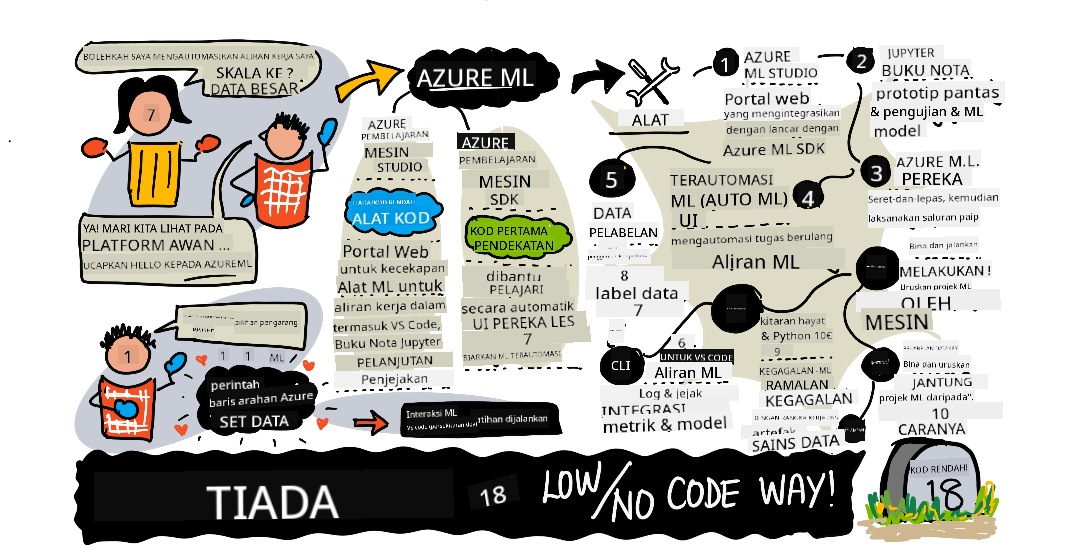 BOLEHKAH SAYA MENGAUTOMASIKAN ALIRAN KERJA SAYA
SKALA KE ?
DATA BESAR
7
YA! MARI KITA LIHAT PADA
PLATFORM AWAN ...
UCAPKAN HELLO KEPADA AZUREML
AZURE ML
AZURE
PEMBELAJARAN
MESIN
STUDIO
ALAT KOD
Portal Web
untuk kecekapan
Alat ML untuk
aliran kerja dalam
termasuk VS Code,
Buku Nota Jupyter
PELANJUTAN
Penjejakan
AZURE
PEMBELAJARAN
MESIN
SDK
KOD PERTAMA
PENDEKATAN
dibantu
PELAJARI
secara automatik
UI PEREKA LES
7
BIARKAN ML TERAUTOMASI
ALAT
1
AZURE
ML STUDIO
Portal web
yang mengintegrasikan
dengan lancar dengan
Azure ML SDK
2
JUPYTER
BUKU NOTA
prototip pantas
& pengujian & ML
model
3
AZURE M.L.
PEREKA
Seret-dan-lepas, kemudian
laksanakan saluran paip
4
TERAUTOMASI
ML (AUTO ML)
UI
mengautomasi tugas berulang
Aliran ML
5
DATA
PELABELAN
8
label data
7
6
CLI
UNTUK VS CODE
Aliran ML
Log & jejak
INTEGRASI
metrik & model
kitaran hayat
& Python 10€
9
KEGAGALAN - ML
RAMALAN
KEGAGALAN
artefak
SAINS DATA
Bina dan jalankan
MELAKUKAN !
Uruskan projek ML
OLEH
MESIN
Bina dan uruskan
JANTUNG
projek ML daripada".
10
CARANYA
1
1 1 ML
perintah
baris arahan Azure
SET DATA
Interaksi ML
latihan dijalankan
TIADA
18
LOW/NO CODE WAY!
KOD RENDAH!
18